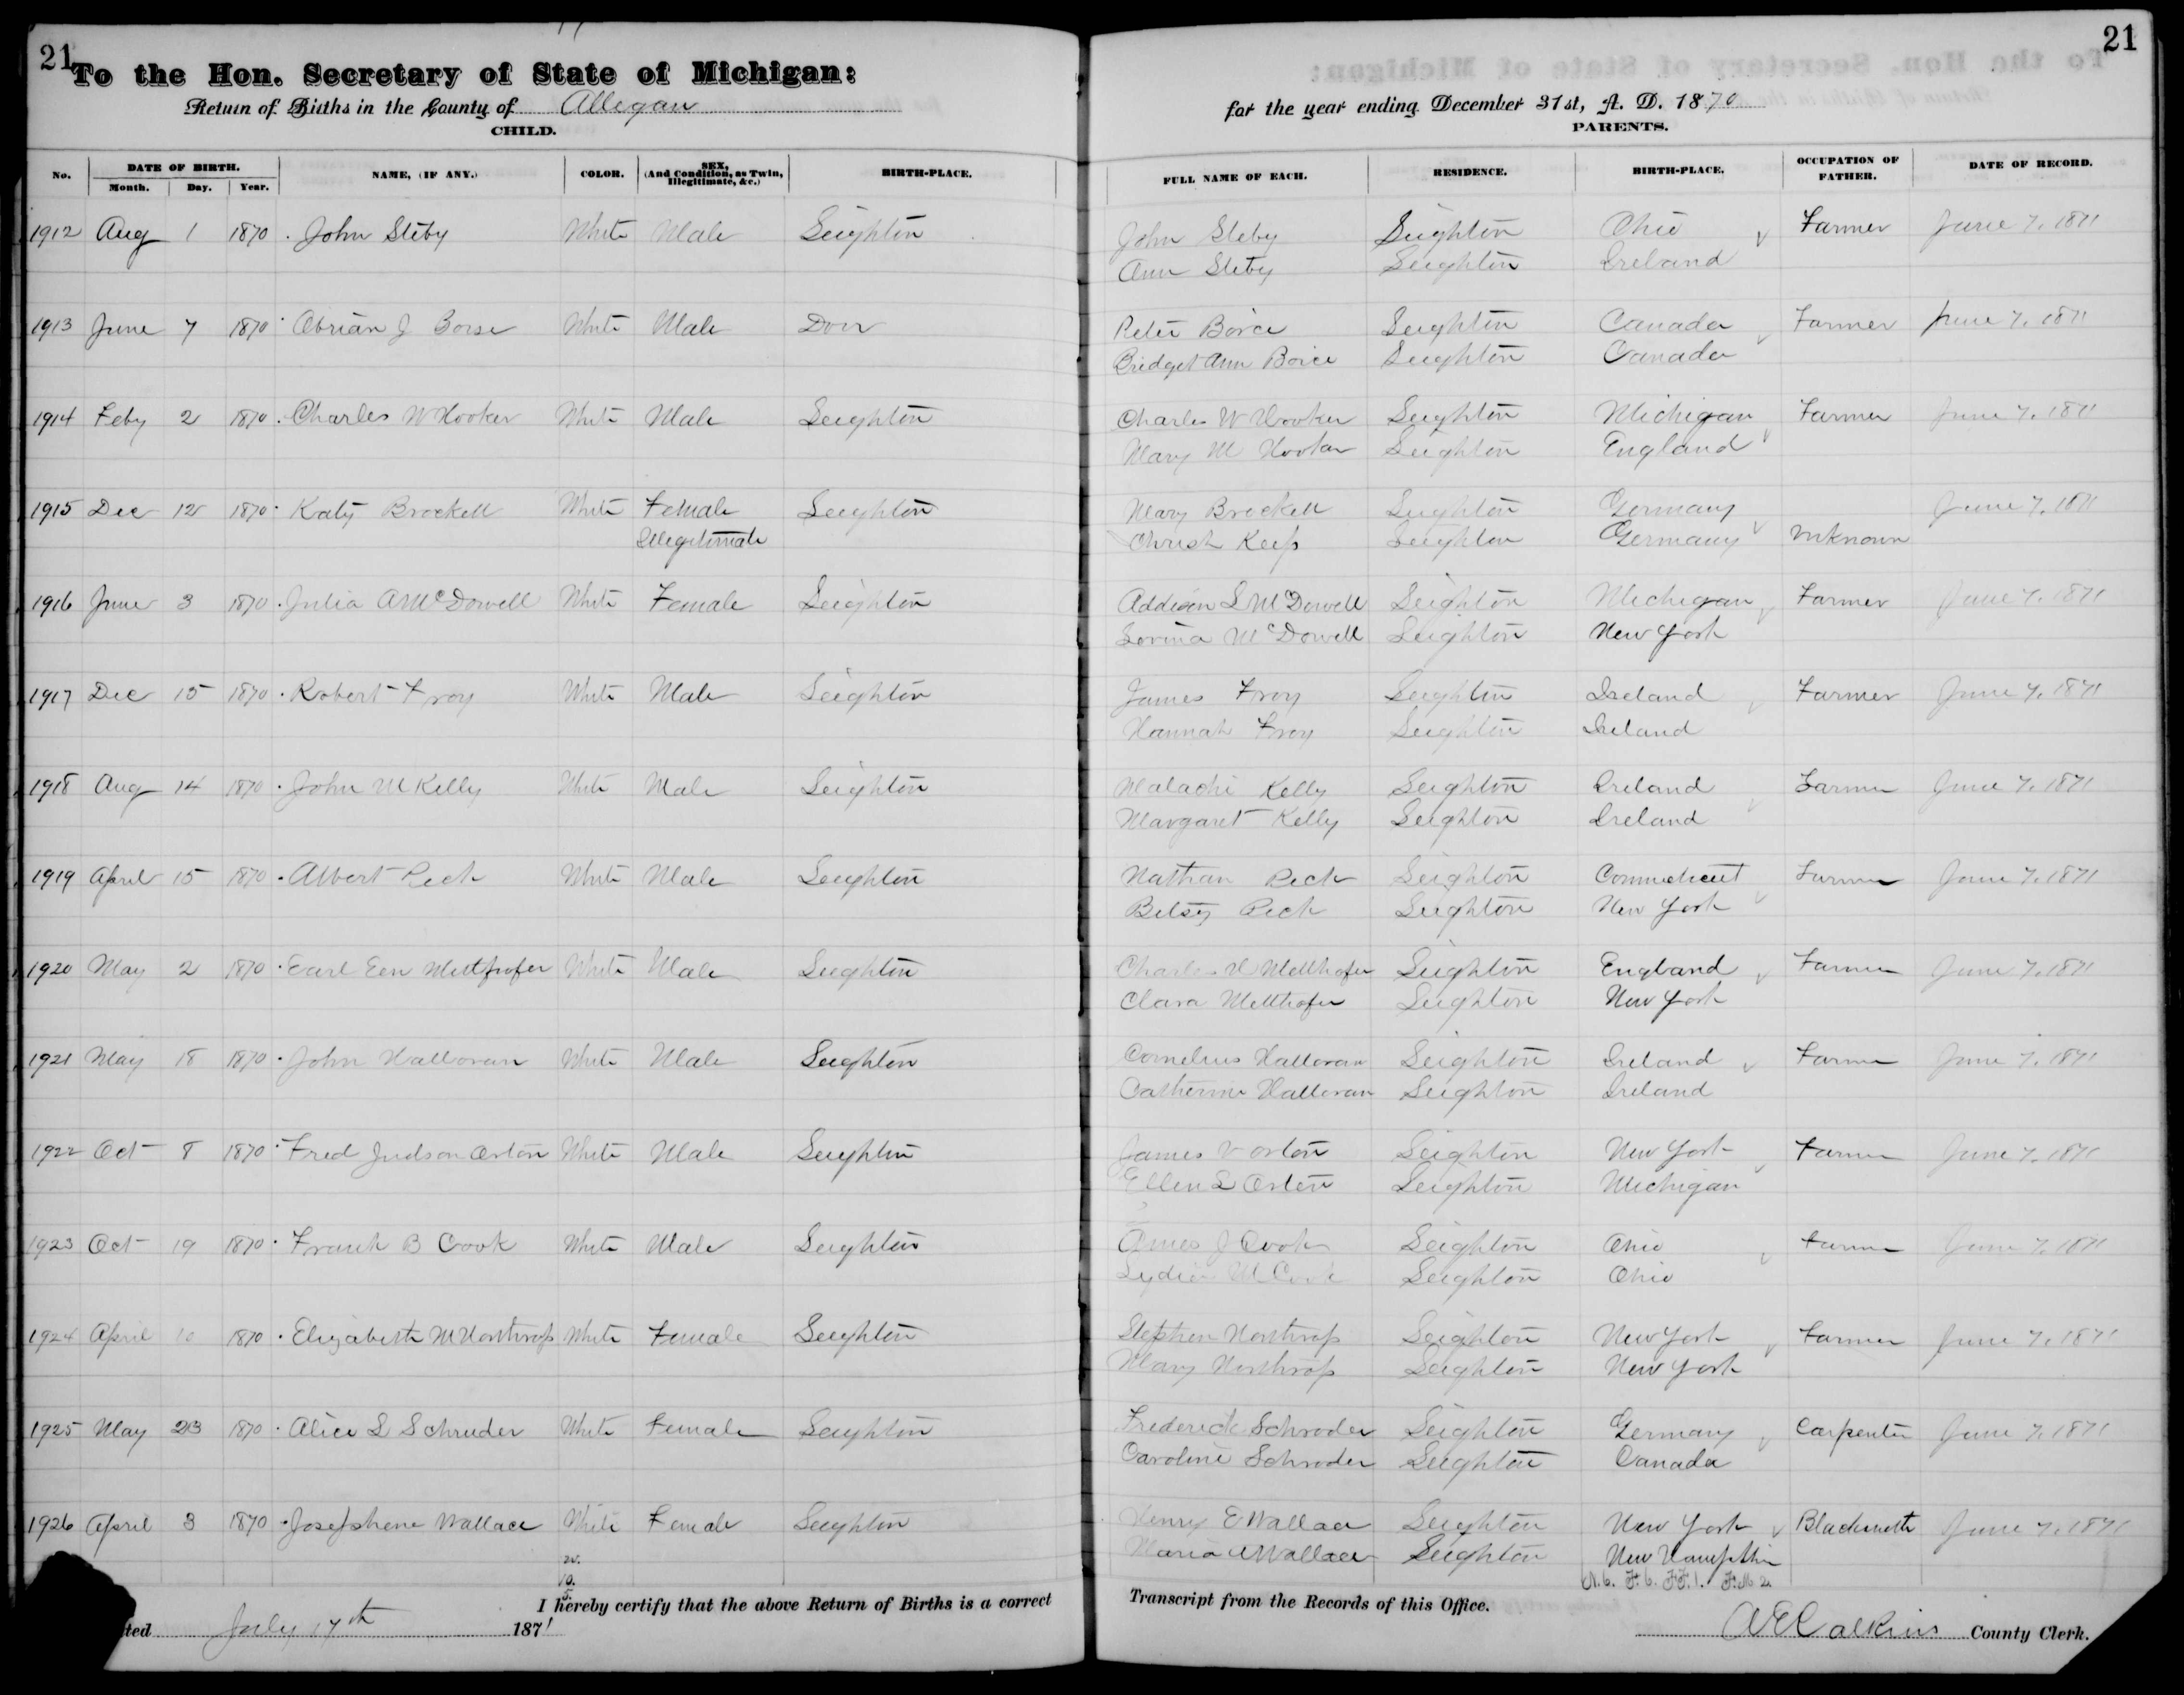 21
To the Hon. Secretary of State of Michigan:
Return of Births in the County of Allegan
CHILD.
21
for the year ending December 31st, A. D. 1870
PARENTS.
No. DATE OF BIRTH. Month. Day. Year. NAME, (IF ANY.) COLOR. SEX, (And Condition, as Twin, Illegitimate, &c.) BIRTH-PLACE. FULL NAME OF EACH. RESIDENCE. BIRTH-PLACE. OCCUPATION OF FATHER. DATE OF RECORD.
1912 Aug 1 1870 John Steby White Male Leighton John Steby Leighton Ohio Farmer June 7, 1871
Ann Steby Leighton Ireland
1913 June 7 1870 Abrian J Borse White Male Dorr Peter Boice Leighton Canada Farmer June 7, 1871
Bridget Ann Boice Leighton Canada
1914 Feby 2 1870 Charles W Hooker White Male Leighton Charles W Hooker Leighton Michigan Farmer June 7, 1871
Mary M Hooker Leighton England
1915 Dec 12 1870 Katy Brockell White Female Leighton Mary Brockell Leighton Germany June 7, 1871
Illegitimate Christ Keep Leighton Germany Unknown
1916 June 3 1870 Julia A McDowell White Female Leighton Addison L McDowell Leighton Michigan Farmer June 7, 1871
Lovina McDowell Leighton New York
1917 Dec 15 1870 Robert Froy White Male Leighton James Froy Leighton Ireland Farmer June 7, 1871
Hannah Froy Leighton Ireland
1918 Aug 14 1870 John M Kelly White Male Leighton Malachi Kelly Leighton Ireland Farmer June 7, 1871
Margaret Kelly Leighton Ireland
1919 April 15 1870 Albert Peck White Male Leighton Nathan Peck Leighton Connecticut Farmer June 7, 1871
Betsy Peck Leighton New York
1920 May 2 1870 Earl Een White Male Leighton Charles Leighton England Farmer June 7, 1871
Clara Leighton New York
1921 May 18 1870 John Halloran White Male Leighton Cornelius Halloran Leighton Ireland Farmer June 7, 1871
Catherine Halloran Leighton Ireland
1922 Oct 8 1870 Fred Judson Orton White Male Leighton James V Orton Leighton New York Farmer June 7, 1871
Ellen L Orton Leighton Michigan
1923 Oct 19 1870 Frank B Cook White Male Leighton Ames J Cook Leighton Ohio Farmer June 7, 1871
Lydia M Cook Leighton Ohio
1924 April 10 1870 Elizabeth M Northrop White Female Leighton Stephen Northrop Leighton New York Farmer June 7, 1871
Mary Northrop Leighton New York
1925 May 23 1870 Alice L Schruder White Female Leighton Frederick Schroder Leighton Germany Carpenter June 7, 1871
Caroline Schroder Leighton Canada
1926 April 3 1870 Josephene Wallace White Female Leighton Henry E Wallace Leighton New York Blacksmith June 7, 1871
Maria A Wallace Leighton New Hampshire
20.
10.
5.
N. 6. F. 6. FF. 1. F. M 2
ted July 17th 1871 I hereby certify that the above Return of Births is a correct
Transcript from the Records of this Office.
A E Calkins County Clerk.